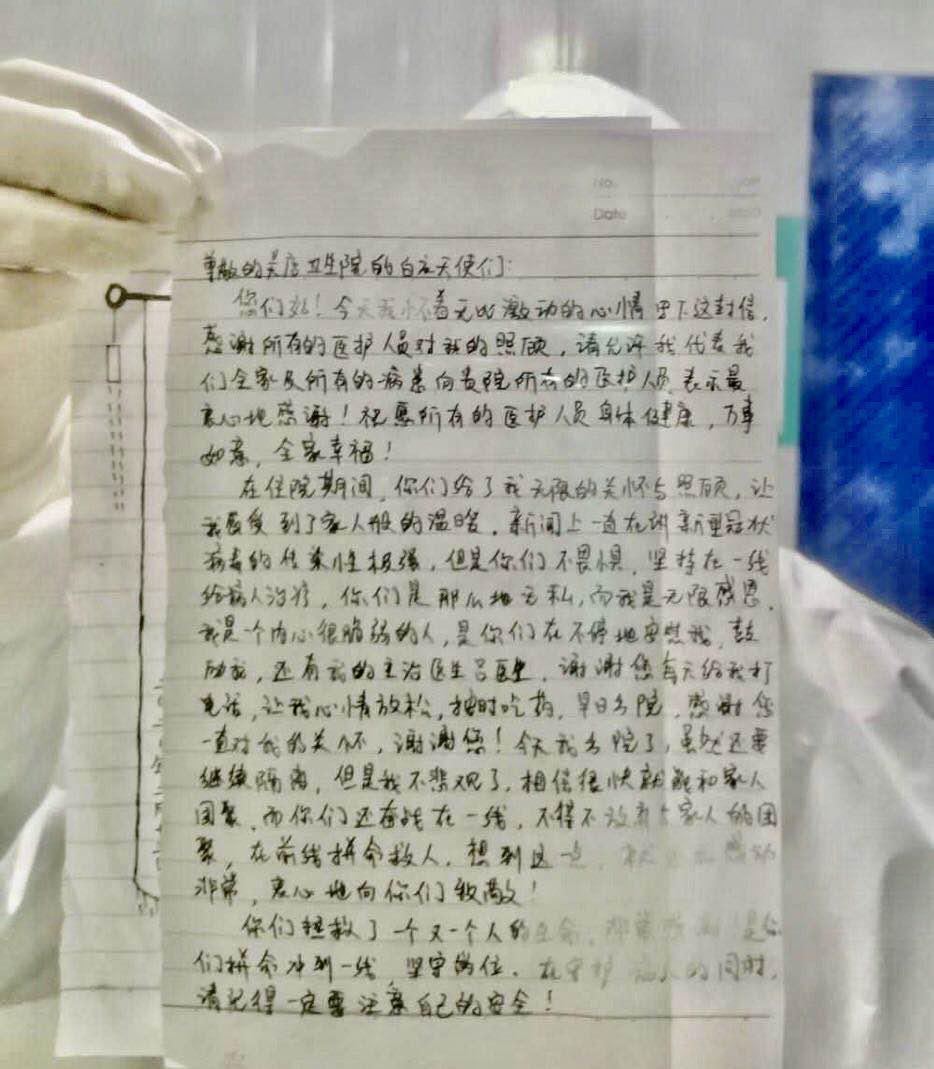 No.
Date
尊敬的吴店卫生院的白衣天使们:
你们好!今天我怀着无比激动的心情写下这封信,
感谢所有的医护人员对我的照顾,请允许我代表我
们全家及所有的病患向贵院所有的医护人员表示最
衷心地感谢!祝愿所有的医护人员身体健康,万事
如意,全家幸福!
在住院期间,你们给了我无限的关怀与照顾,让
我感受到了家人般的温暖。新闻上一直在讲新型冠状
病毒的传染性极强,但是你们不畏惧,坚持在一线
给病人治疗,你们是那么地无私,而我是无限感恩。
我是一个内心很脆弱的人,是你们在不停地安慰我,鼓
励我,还有我的主治医生吕医生,谢谢您每天给我打
电话,让我心情放松,按时吃药,早日出院,感谢您
一直对我的关怀,谢谢您!今天我出院了,虽然还要
继续隔离,但是我不悲观了,相信很快就能和家人
团聚,而你们还奋战在一线,不得不放弃与家人的团
聚,在前线拼命救人,想到这一点,
非常,衷心地向你们致敬!
你们拯救了一个又一个人的生命,非常感谢!是你
们拼命冲到一线,坚守岗位,在守护病人的同时,
请记得一定要注意自己的安全!